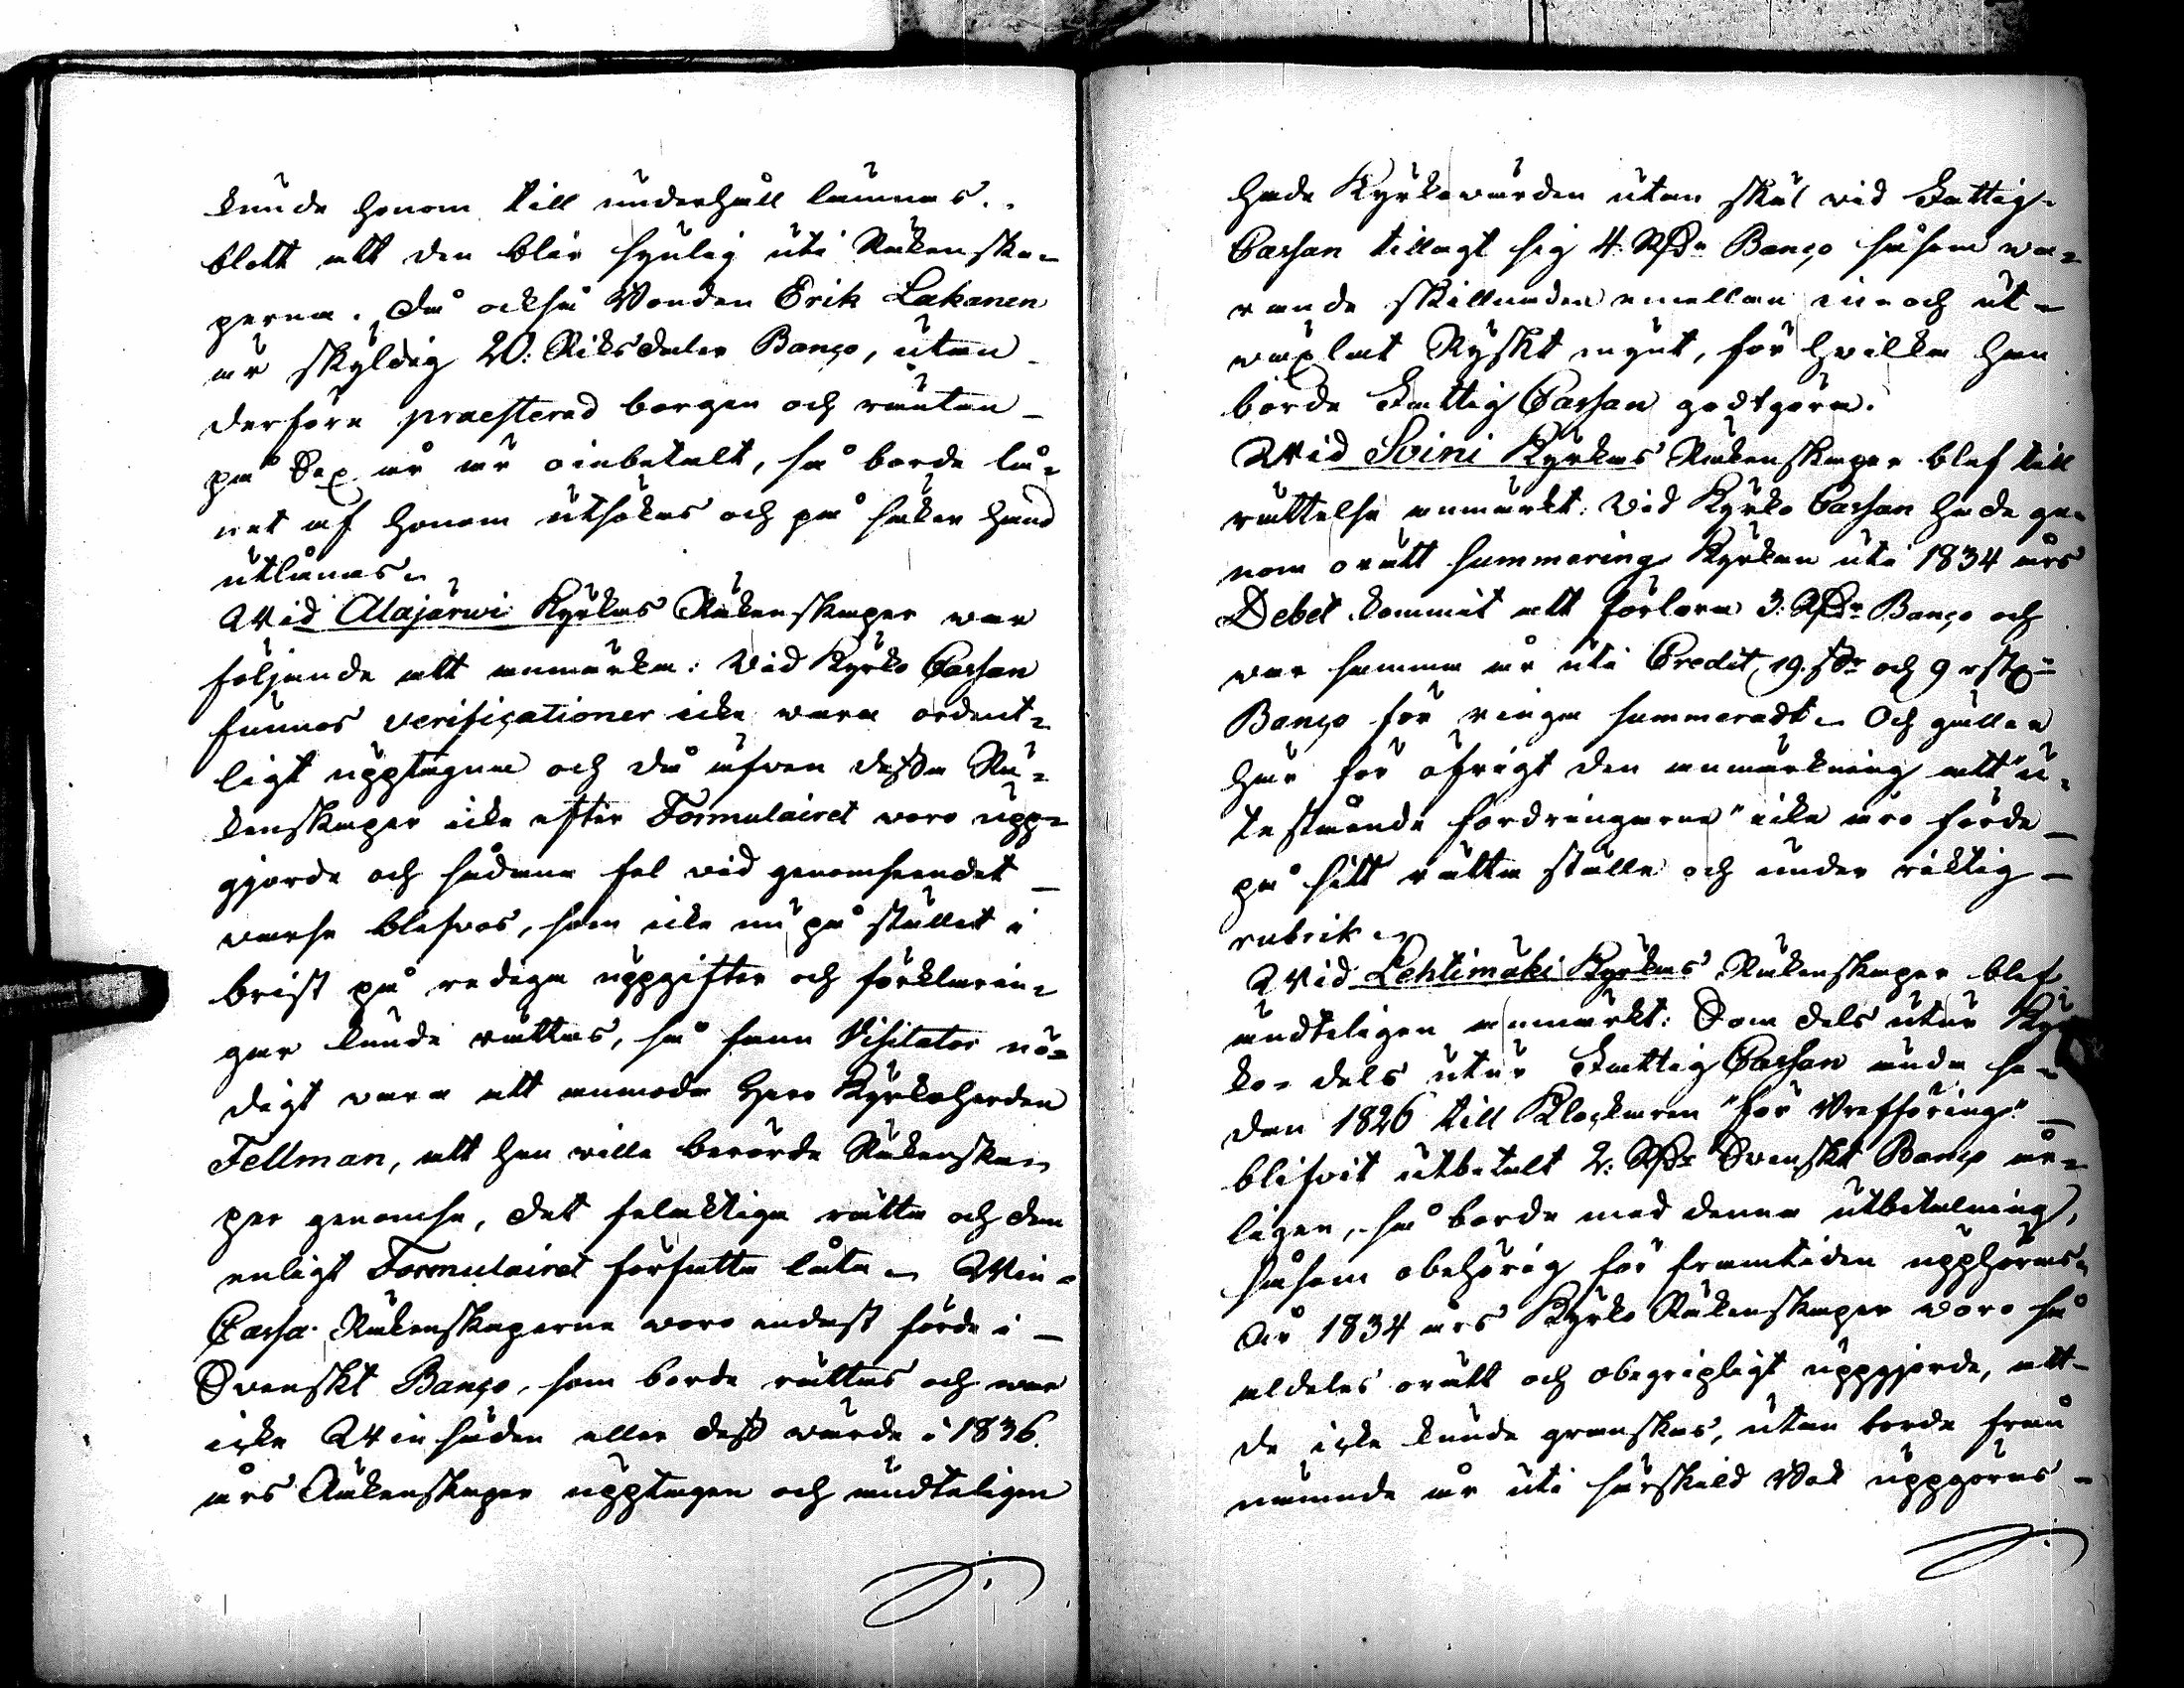 kunde honom till underhåll lämnas.
blott att den blir synlig uti Räkenska-
perna. Då också Bonden Erik Lakanen
är skyldig 20: Riksdaler Banço, utan
derföre praesterad borgen och räntan
på Sex år är oinbetalt, så borde lå-
net af honom utsökas och på säker hand
utlånas.
Wid Alajärwi Kyrkas Räkenskaper war
följande att anmärka: Vid Kyrko Cassan
funnos verificationer icke wara ordent-
ligt upptagna och då äfwen dessa Rä-
kenskaper icke efter Formulairet woro upp-
gjorde och sådana fel vid genomseendet
varse blefvos, som icke nu på stället i
brist på rediga uppgifter och förklarin-
gar kunde rättas, så fann Visitator nö-
digt wara att anmoda Herr Kyrkoherden
Fellman, att han wille berörde Räkenska-
per genomse, det felaktiga rätta och dem
enligt Formulairet författa låta. Win-
Cassa Räkenskaperna woro endast förde i
Svenskt Banço, som borde rättas och war
icke Winsäden eller dess wärde i 1836.
års Räkenskaper upptagen och mudteligen
hade Kyrkowärden utan skäl vid Fattig-
Cassan tillagt sig 4: Rdr Banço såsom wa-
rande skillnaden emellan in- och ut-
växlat Ryskt mynt, för hvilka han
borde Fattig Cassan godtgöra.
Wid Soini Kyrkas Räkenskaper blef till
rättelse anmärkt: Vid Kyrko Cassan hade ge-
nom orätt summering Kyrkan uti 1834 års
Debet kommit att förlora 3: Rdr Banço och
war samma år uti Credit, 19. sk och 9 rst
Banço för ringa summeradt. Och gäller
här för öfrigt den anmärkning att "u-
testående fordringarna" icke äro förde
på sitt rätta ställe och under riktig
rubrik.
Wid Lehtimäki Kyrkas Räkenskaper blef
mudteligen anmärkt: Som dels utur Kyr-
ko- dels utur Fattig Cassan ända se-
dan 1826 till Klockaren "för Vrefföring"
blifvit utbetalt 2: Rdr Svenskt Banço år-
ligen, så borde med denna utbetalning,
såsom obehörig för framtiden upphöras.
Är 1834 års Kyrko Räkenskaper woro så
aldeles orätt och obegripligt uppgjorde, att
de icke kunde granskas, utan borde från
nämnde år uti särskild Bok uppgöras